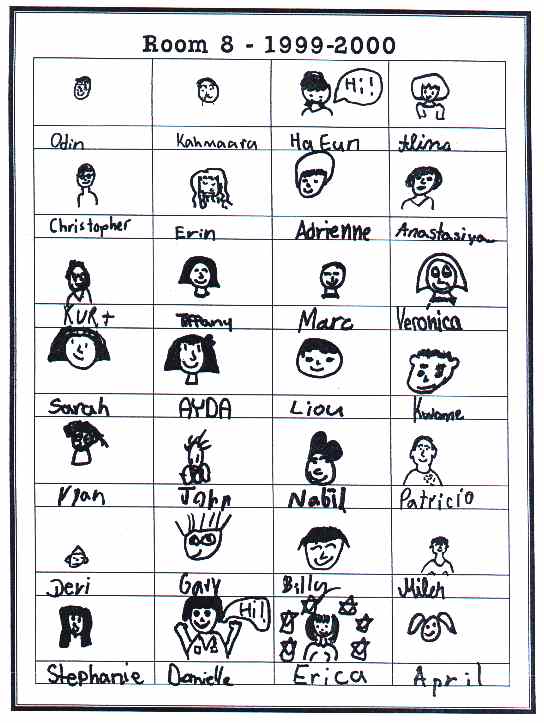 Room 8 - 1999-2000
Hi!
Odin Kahmaara Ha Eun Alina
Christopher Erin Adrienne Anastasiya
Kurt Tiffany Marc Veronica
Sarah AYDA Liou Kwame
Ryan John Nabil Patricio
Deri Gary Billy Miles
Hi!
Stephanie Danielle Erica April